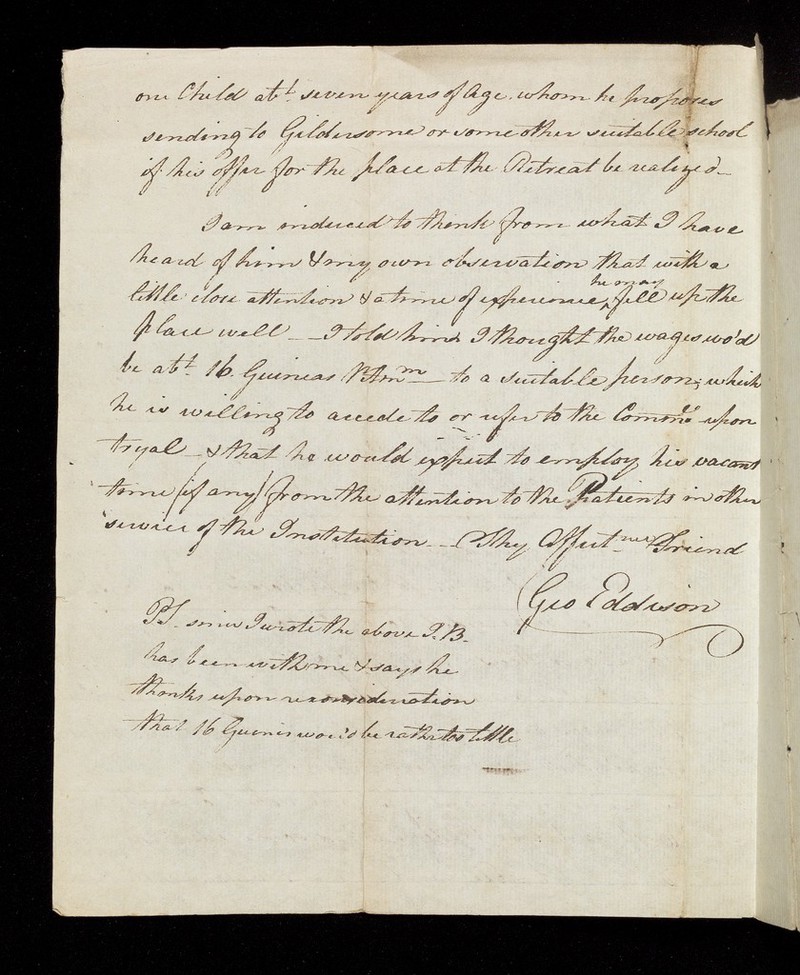 one Child abt. seven years of Age. whom he proposes
sending to Gildersome or some other suitable school
if his offer for the place at the Retreat be realized –
I am induced to think from what I have
heard of him & my own observation that with a
little close attention & a time of experience, he may fill up the
place well – I told him I thought the wages wo'd
be abt. 16. Guineas P Anm – to a suitable person; which
he is willing to accede to or refer to the Commee upon
tryal – & that he would expect to employ his vacant
time (if any) from the attention to the Patients in other
service of the Institution – Thy Affect. Friend
Geo Eddison
PS. since I wrote the above J.B.
has been with me & says he
thinks upon reconsideration
that 16 Guineas wou'd be rather too little